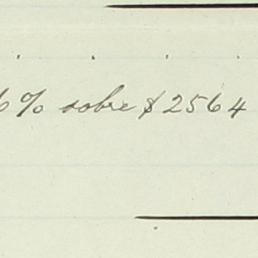 6% sobre $2564